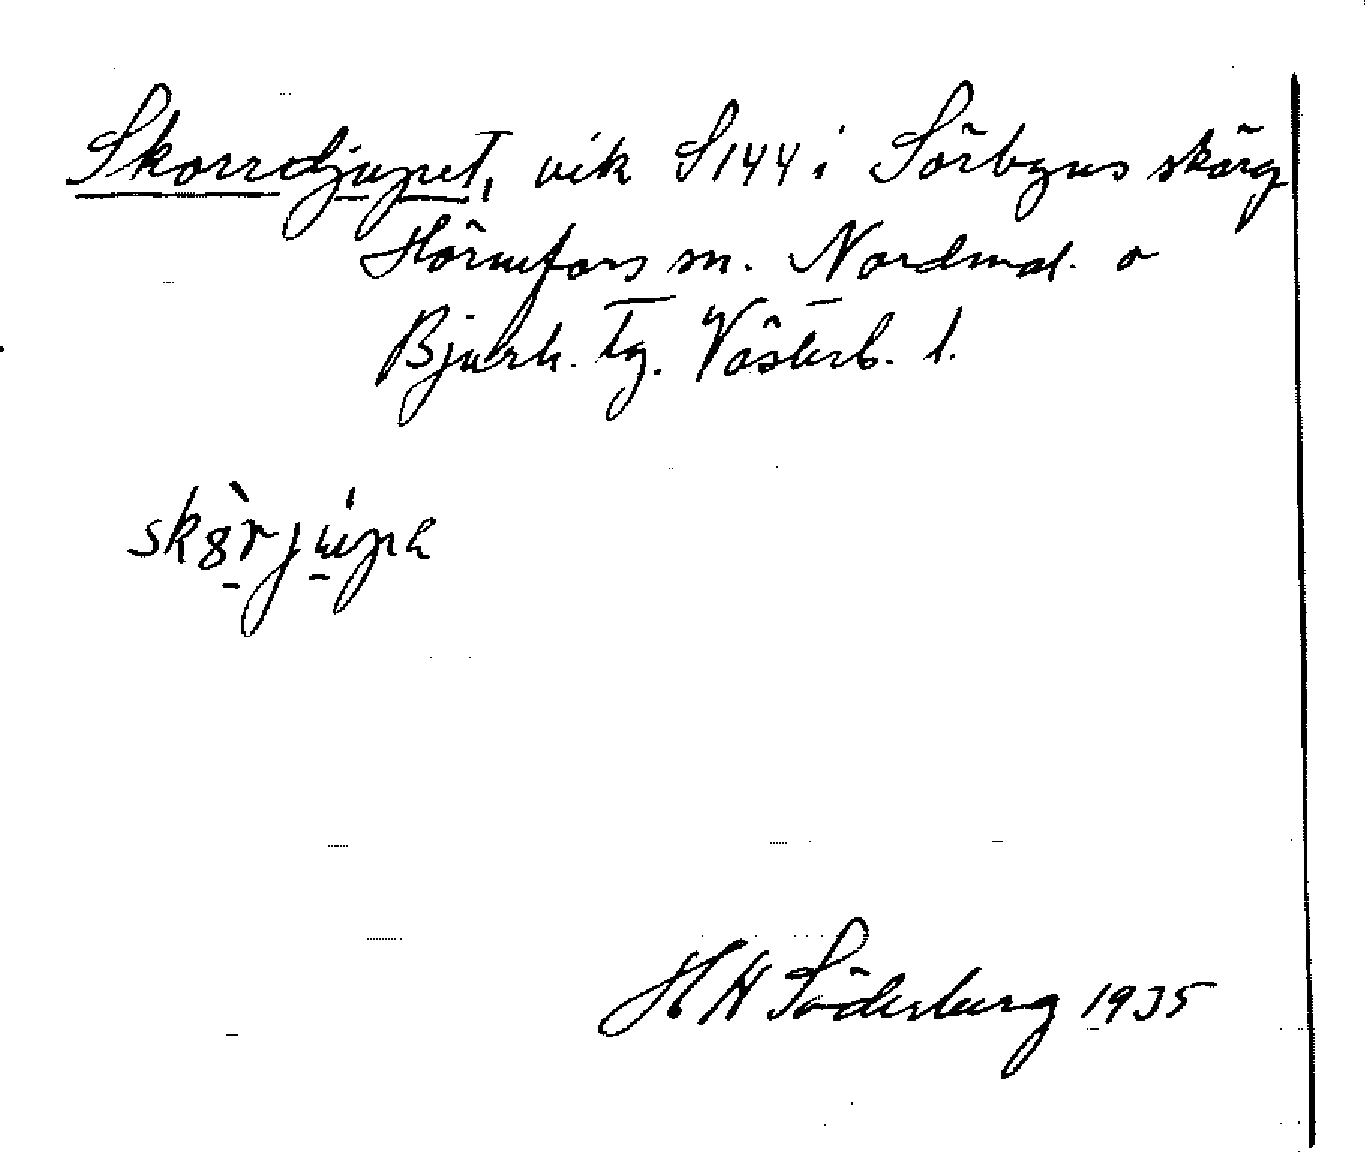 Skorrdjupet, vik S144 i Sörbyns skärg
Hörnefors sn. Nordmal. o
Bjurh. tg. Västerb. l.
H N Söderberg 1935